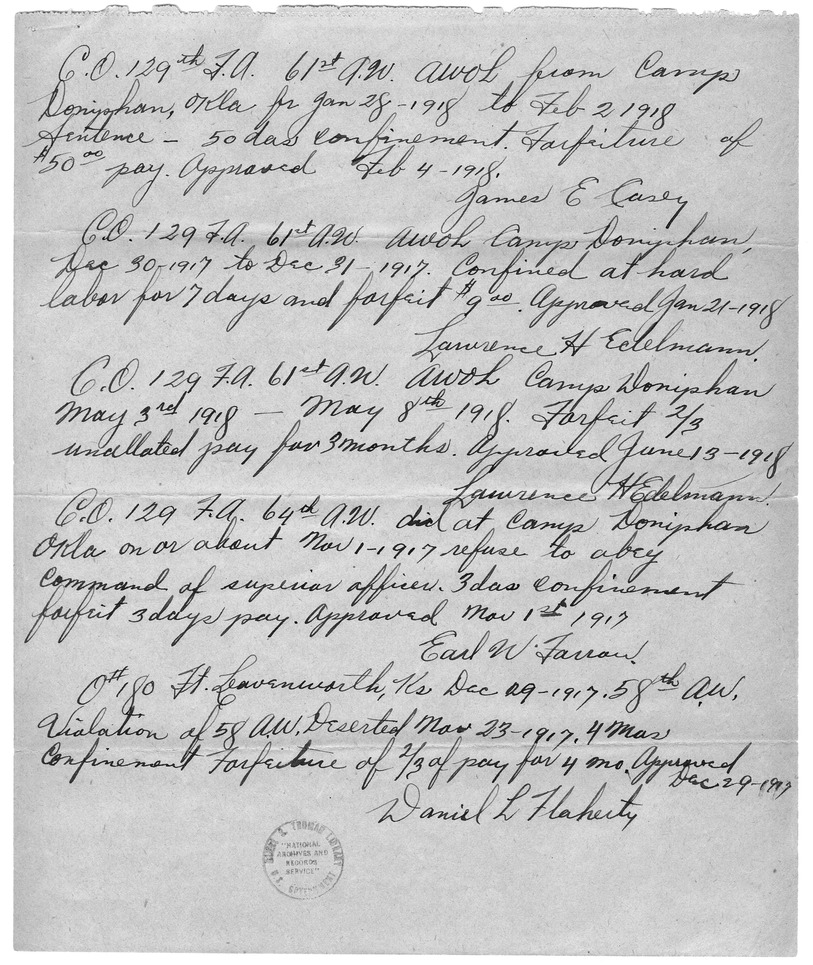 C.O. 129th F.A. 61st A.W. AWOL from Camp
Doniphan, Okla fr Jan 28-1918 to Feb 2 1918
Sentence - 50 das confinement. Forfeiture of
$50 00 pay. Approved Feb 4-1918.
James E Casey
C.O. 129 F.A. 61st A.W. AWOL Camp Doniphan,
Dec 30-1917 to Dec 31-1917. Confined at hard
labor for 7 days and forfeit $9 00. Approved Jan 21-1918
Lawrence H Edelmann.
C.O. 129 F.A. 61st A.W. AWOL Camp Doniphan
May 3rd 1918 — May 8th 1918. Forfeit 2/3
unallated pay for 3 months. Approved June 13-1918
Lawrence H Edelmann.
C.O. 129 F.A. 64th A.W. did at Camp Doniphan
Okla on or about Nov 1-1917 refuse to obey
command of superior officer. 3 das confinement
forfeit 3 days pay. Approved Nov 1st 1917
Earl W. Farrow.
O#180 Ft. Leavenworth, Ks Dec 29-1917. 58th A.W.
Violation of 58 A.W. Deserted Nov 23-1917. 4 Mos
Confinement Forfeiture of 2/3 of pay for 4 mo. Approved
Dec 29-1917
Daniel L Flaherty
HARRY S. TRUMAN LIBRARY
"NATIONAL
ARCHIVES AND
RECORDS
SERVICE"
U.S. GOVERNMENT